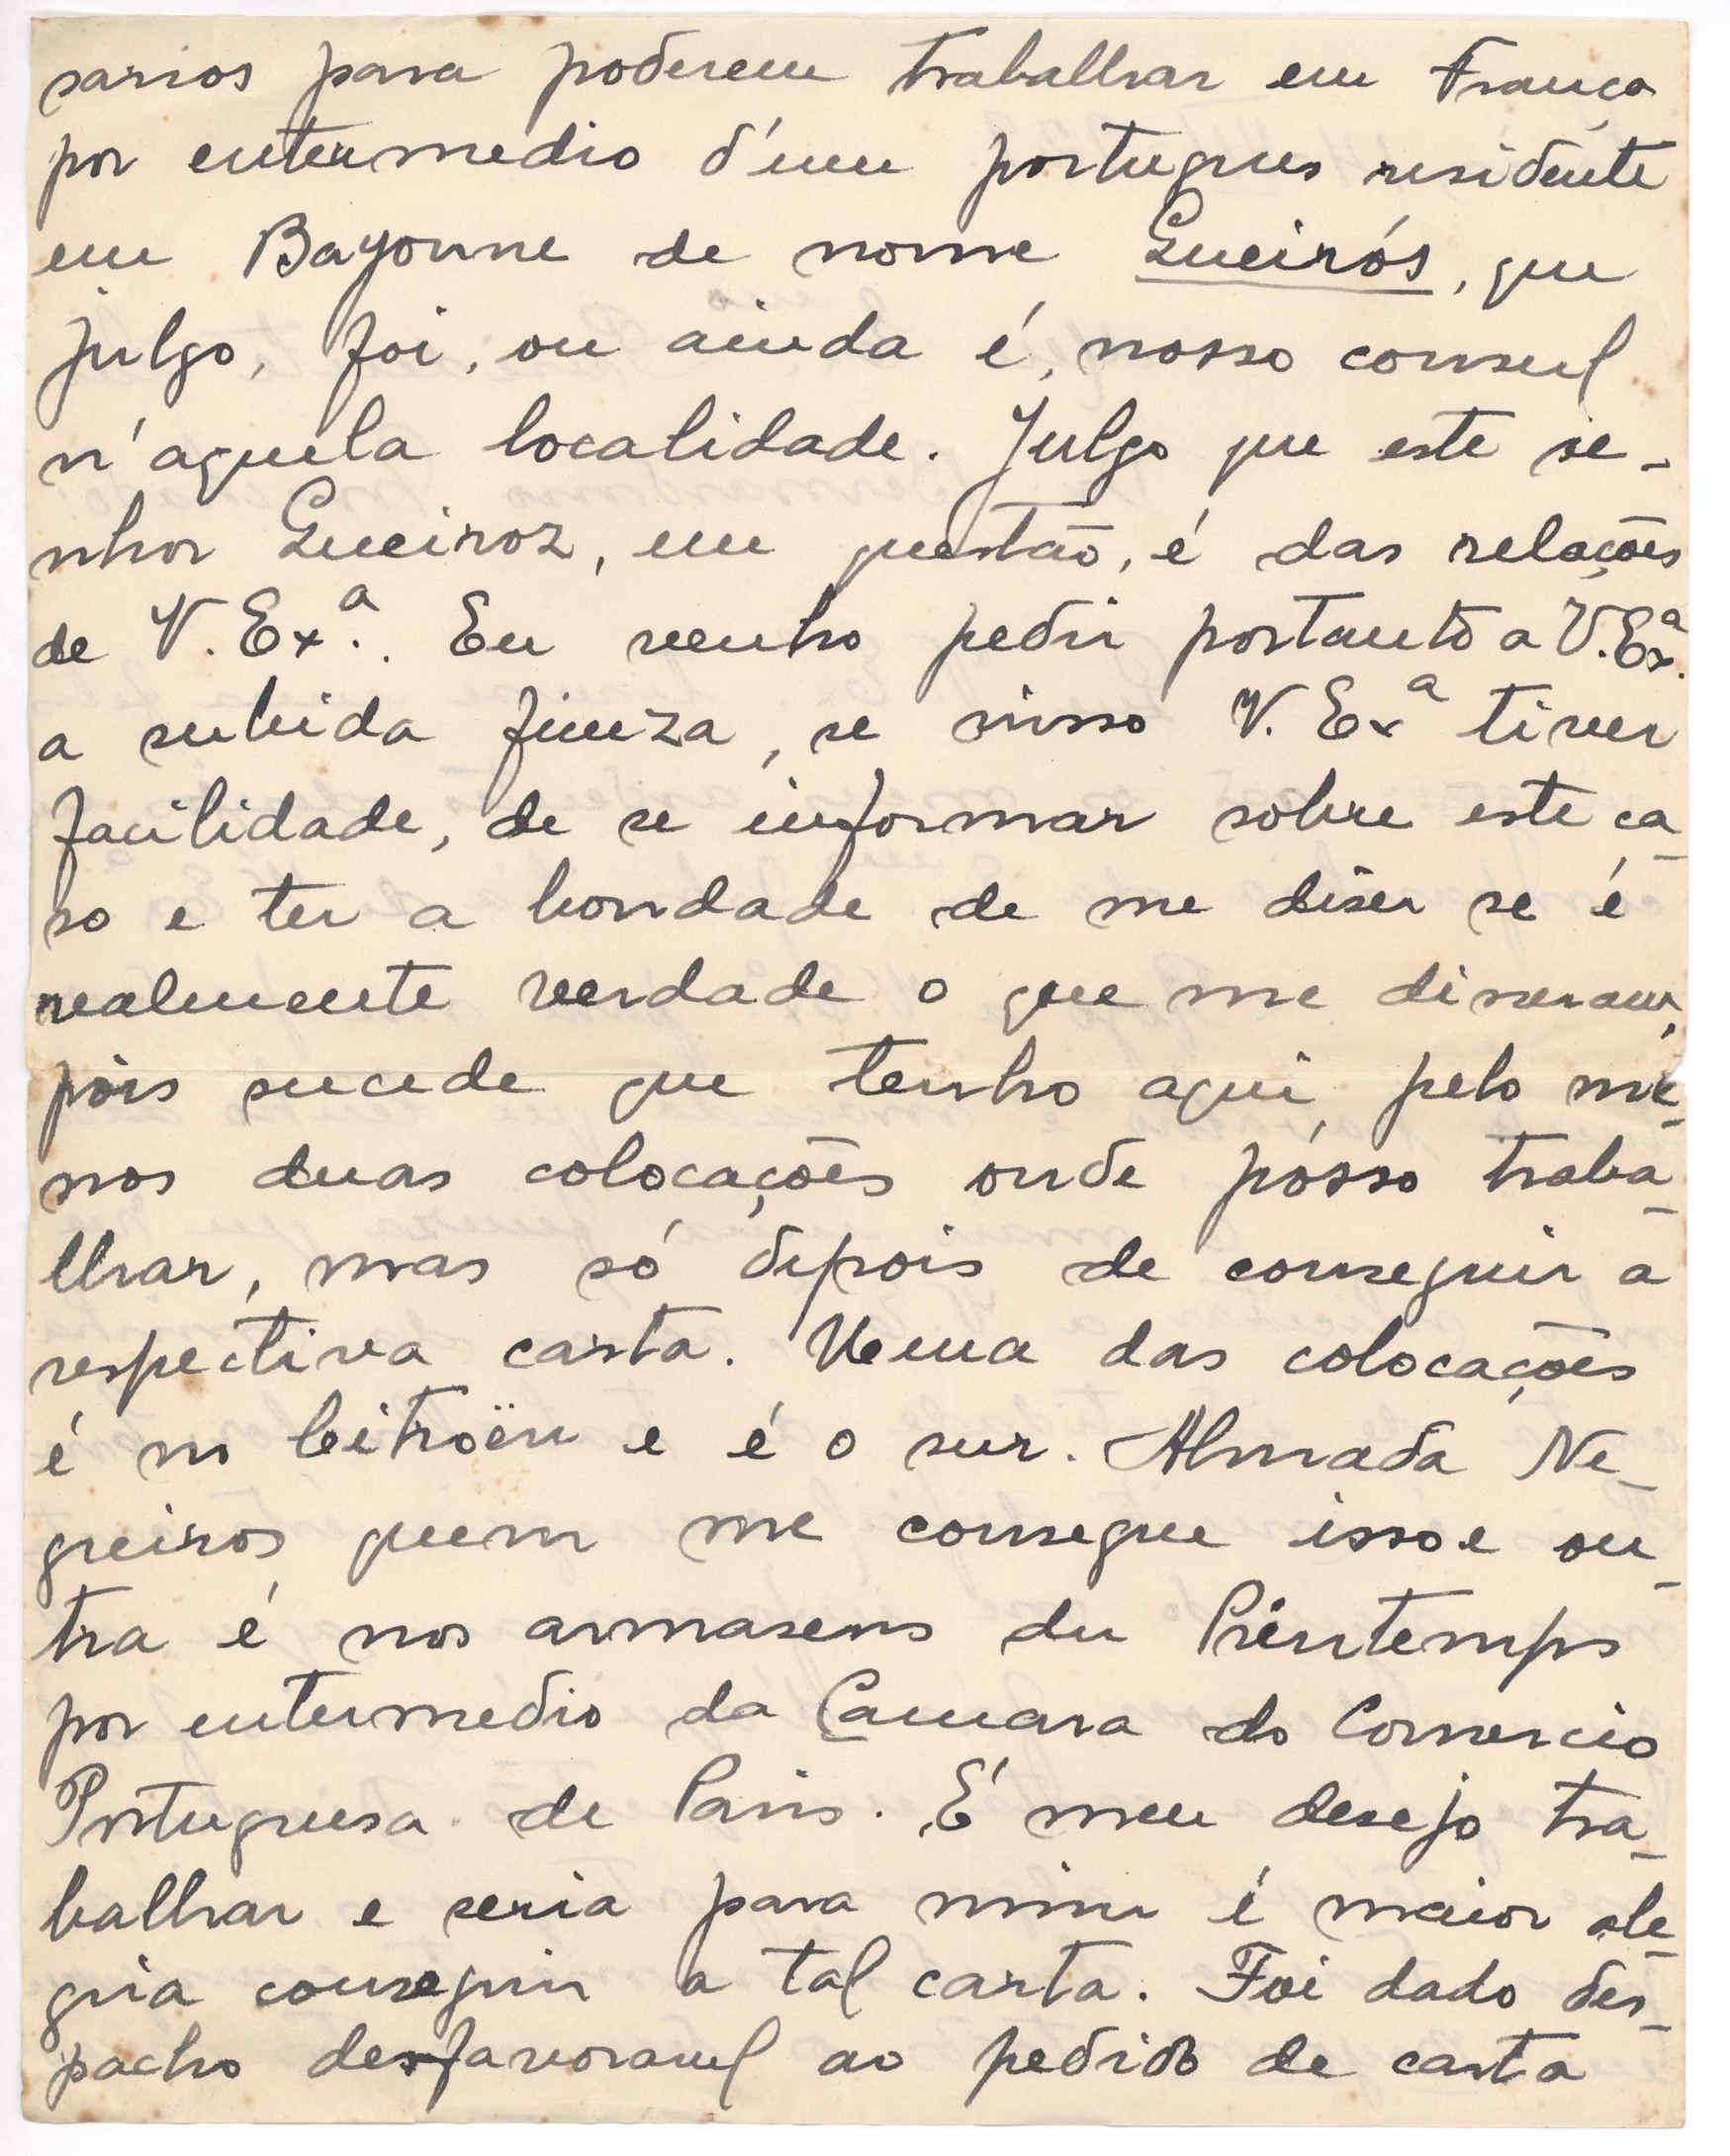 sarios para poderem trabalhar em França
por entermedio d'um portugues residente
em Bayonne de nome Queirós, que
julgo, foi, ou ainda é, nosso consul
n'aquela localidade. Julgo que este se-
nhor Queiroz, em questão, é das relações
de V. Exª. Eu venho pedir portanto a V. Exª.
a subida fineza, se nisso V. Exª tiver
facilidade, de se informar sobre este ca-
so e ter a bondade de me diser se é
realmente verdade o que me disseram,
pois sucede que tenho aqui, pelo me-
nos duas colocações onde pósso traba-
lhar, mas só depois de conseguir a
respectiva carta. Uma das colocações
é no Citroën e é o snr. Almada Ne-
greiros quem me consegue isso e ou-
tra é nos armasens du Printemps
por entermedio da Camara do Comercio
Portuguesa de Paris. É meu desejo tra-
balhar e seria para mim é maior ale-
gria conseguir a tal carta. Foi dado des-
pacho desfavoravel ao pedido de carta